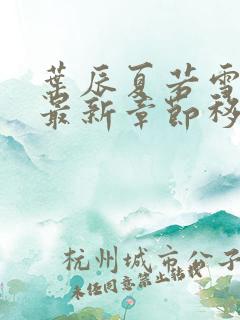 葉辰夏若雪
最新章節移
杭州城市公子
未经同意禁止转载